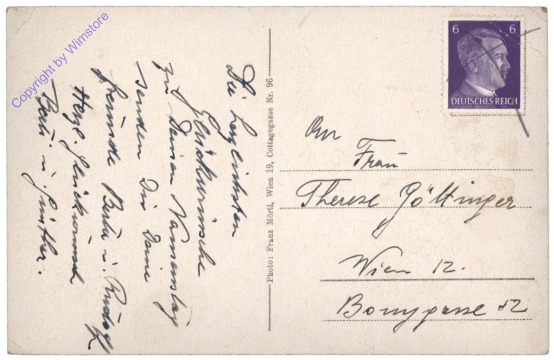 Die herzlichsten
Glückwünsche
zu Deinem Namenstag
senden Dir Deine
Freunde Berta u. Rudolf
Herzl. Glückwunsch
u. Günther.
Photo: Franz Mörtl, Wien 19, Cottagegasse Nr. 96
6 6
DEUTSCHES REICH
An
Frau
Therese Göttinger
Wien 12.
Bonygasse 52
Copyright by Wimstore